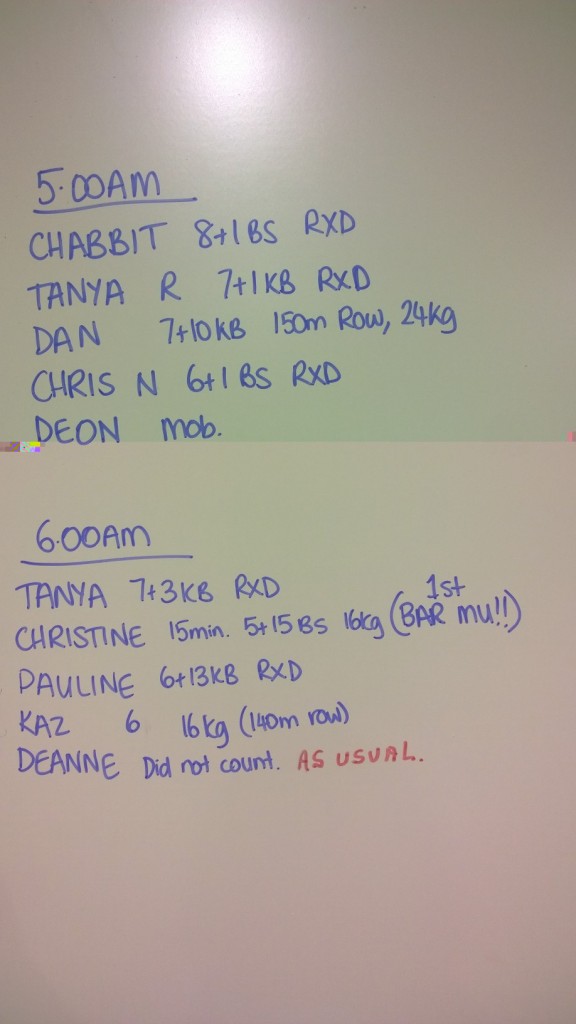 5.00AM
CHABBIT 8+1 BS RXD
TANYA R 7+1KB RXD
DAN 7+10KB 150m Row, 24kg
CHRIS N 6+1 BS RXD
DEON mob.
6.00AM
TANYA 7+3KB RXD
CHRISTINE 15min. 5+15BS 16kg (1st BAR mu!!)
PAULINE 6+13KB RXD
KAZ 6 16kg (140m row)
DEANNE Did not count. AS USUAL.